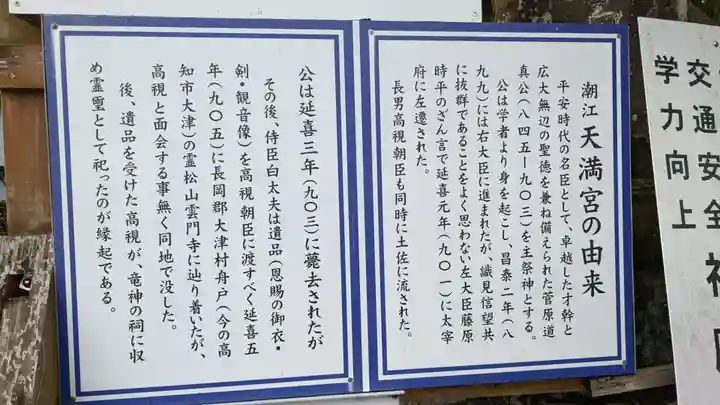 潮江天満宮の由来
平安時代の名臣として、卓越した才幹と
広大無辺の聖徳を兼ね備えられた菅原道
真公(八四五ー九〇三)を主祭神とする。
公は学者より身を起こし、昌泰二年(八
九九)には右大臣に進まれたが、識見信望共
に抜群であることをよく思わない左大臣藤原
時平のざん言で延喜元年(九〇一)に太宰
府に左遷された。
長男高視朝臣も同時に土佐に流された。
公は延喜三年(九〇三)に薨去されたが
その後、侍臣白太夫は遺品(恩賜の御衣・
剣・観音像)を高視朝臣に渡すべく延喜五
年(九〇五)に長岡郡大津村舟戸(今の高
知市大津)の霊松山雲門寺に辿り着いたが、
高視と面会する事無く同地で没した。
後、遺品を受けた高視が、竜神の祠に収
め霊璽として祀ったのが縁起である。
交通安全
学力向上